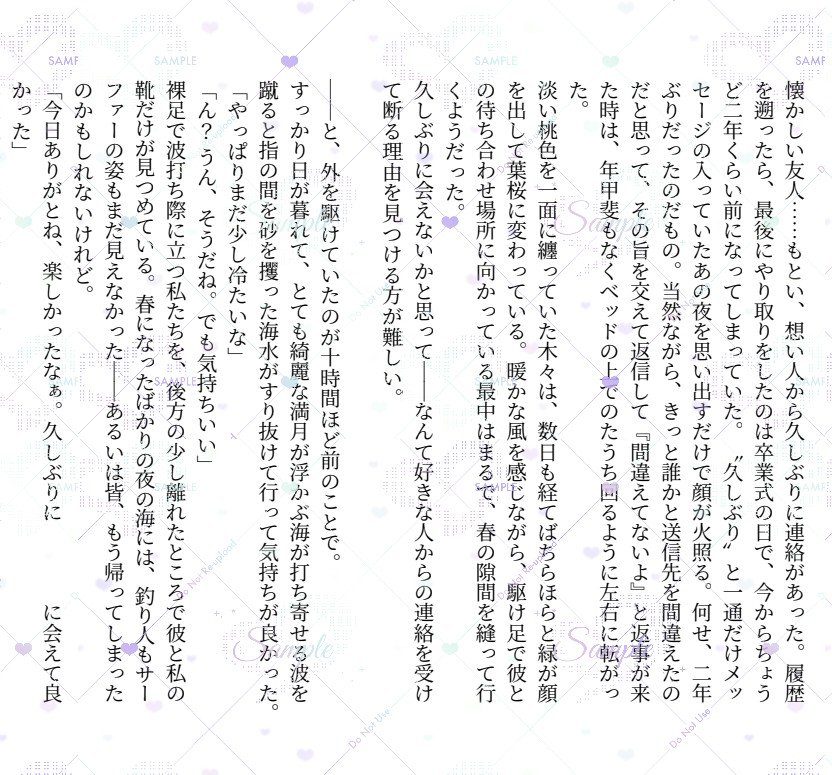 懐かしい友人……もとい、想い人から久しぶりに連絡があった。履歴
を遡ったら、最後にやり取りをしたのは卒業式の日で、今からちょう
ど二年くらい前になってしまっていた。〝久しぶり〟と一通だけメッ
セージの入っていたあの夜を思い出すだけで顔が火照る。何せ、二年
ぶりだったのだもの。当然ながら、きっと誰かと送信先を間違えたの
だと思って、その旨を交えて返信して『間違えてないよ』と返事が来
た時は、年甲斐もなくベッドの上でのたうち回るように左右に転がっ
た。
淡い桃色を一面に纏っていた木々は、数日も経てばちらほらと緑が顔
を出して葉桜に変わっている。暖かな風を感じながら、駆け足で彼と
の待ち合わせ場所に向かっている最中はまるで、春の隙間を縫って行
くようだった。
久しぶりに会えないかと思って——なんて好きな人からの連絡を受け
て断る理由を見つける方が難しい。
——と、外を駆けていたのが十時間ほど前のことで。
すっかり日が暮れて、とても綺麗な満月が浮かぶ海が打ち寄せる波を
蹴ると指の間を砂を攫った海水がすり抜けて行って気持ちが良かった。
「やっぱりまだ少し冷たいな」
「ん？うん、そうだね。でも気持ちいい」
裸足で波打ち際に立つ私たちを、後方の少し離れたところで彼と私の
靴だけが見つめている。春になったばかりの夜の海には、釣り人もサー
ファーの姿もまだ見えなかった——あるいは皆、もう帰ってしまった
のかもしれないけれど。
「今日ありがとね、楽しかったなぁ。久しぶりに　　　に会えて良
かった」
SAMPLE
Sample
Do Not Reupload
Do Not Use